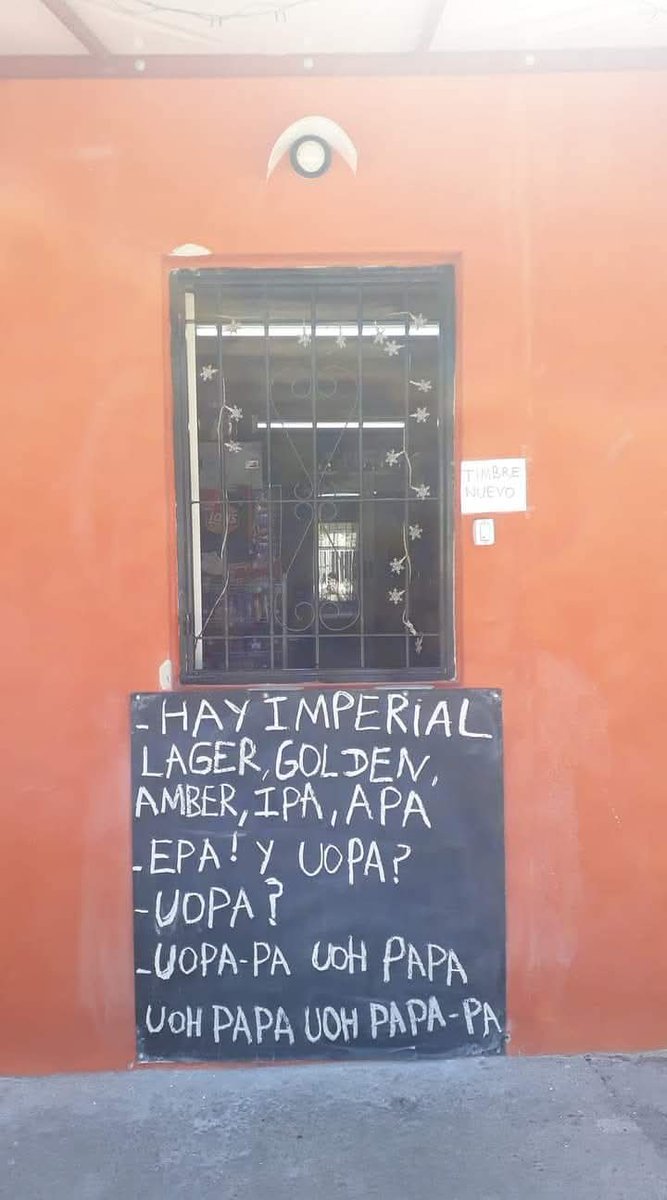 TIMBRE
NUEVO
LAYS
- HAY IMPERiAL
LAGER, GOLDEN,
AMBER, IPA, APA
- EPA! Y UOPA?
- UOPA?
- UOPA-PA UOH PAPA
UOH PAPA UOH PAPA-PA